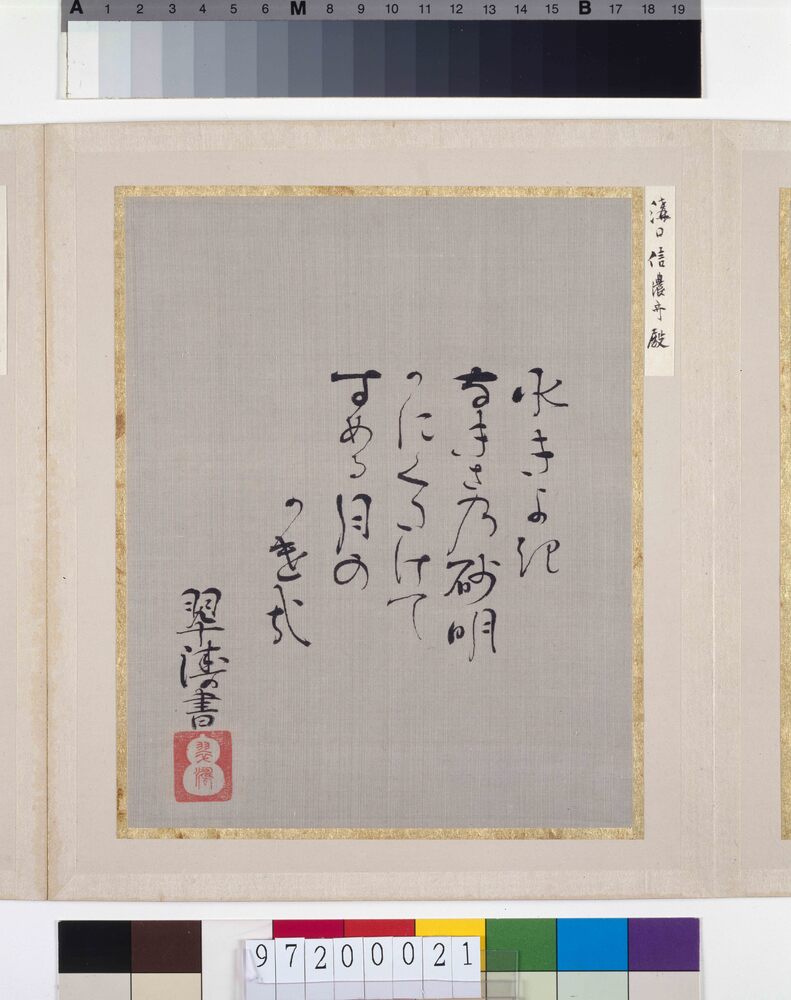 A 1 2 3 4 5 6 M 8 9 10 11 12 13 14 15 B 17 18 19
溝口信濃守殿
水きよき
なきさ乃砂明
かにくたけて
すめる月の
かを
書
97200021